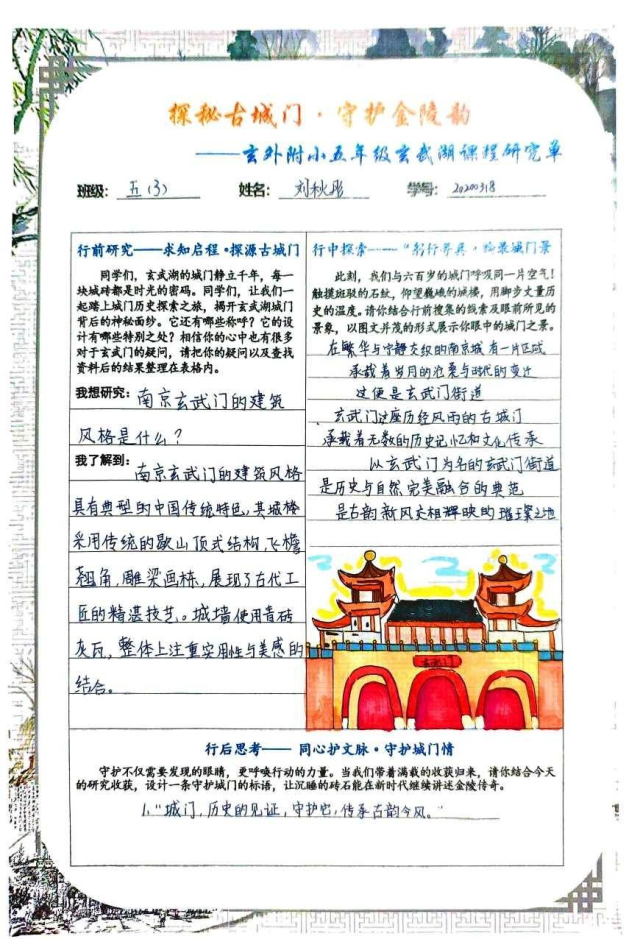 探秘古城门·守护金陵韵
——玄外附小五年级玄武湖课程研究单
班级：五(3) 姓名：刘秋彤 学号：20200318
行前研究——求知启程·探源古城门
同学们，玄武湖的城门静立千年，每一
块城砖都是时光的密码。同学们，让我们一
起踏上城门历史探索之旅，揭开玄武湖城门
背后的神秘面纱。它还有哪些称呼？它的设
计有哪些特别之处？相信你的心中也有很多
对于玄武门的疑问，请把你的疑问以及查找
资料后的结果整理在表格内。
我想研究：南京玄武门的建筑
风格是什么？
我了解到：南京玄武门的建筑风格
具有典型的中国传统特色，其城楼
采用传统的歇山顶式结构，飞檐
翘角，雕梁画栋，展现了古代工
匠的精湛技艺。城墙使用青砖
灰瓦，整体上注重实用性与美感的
结合。
行中探索——
城门景
此刻，我们与六百岁的城门呼吸同一片空气！
触摸斑驳的石纹，仰望巍峨的城楼，用脚步丈量历
史的温度。请你结合行前搜集的线索及眼前所见的
景象，以图文并茂的形式展示你眼中的城门之景。
在繁华与宁静交织的南京城有一片区域
承载着岁月的沧桑与时代的变迁
这便是玄武门街道
玄武门这座历经风雨的古城门
承载着无数的历史记忆和文化传承
以玄武门为名的玄武门街道
是历史与自然完美融合的典范
是古韵新风交相辉映的璀璨之地
玄武门
行后思考—— 同心护文脉·守护城门情
守护不仅需要发现的眼睛，更呼唤行动的力量。当我们带着满载的收获归来，请你结合今天
的研究收获，设计一条守护城门的标语，让沉睡的砖石能在新时代继续讲述金陵传奇。
1."城门，历史的见证，守护它，传承古韵今风。"